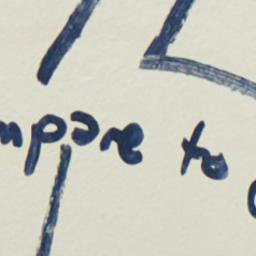 mpare to